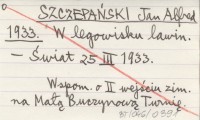 SZCZEPAŃSKI Jan Alfred
1933. W legowisku lawin.
– Świat 25 III 1933.
Wspom. o II wejściu zim.
na Małą Buczynową Turnię.